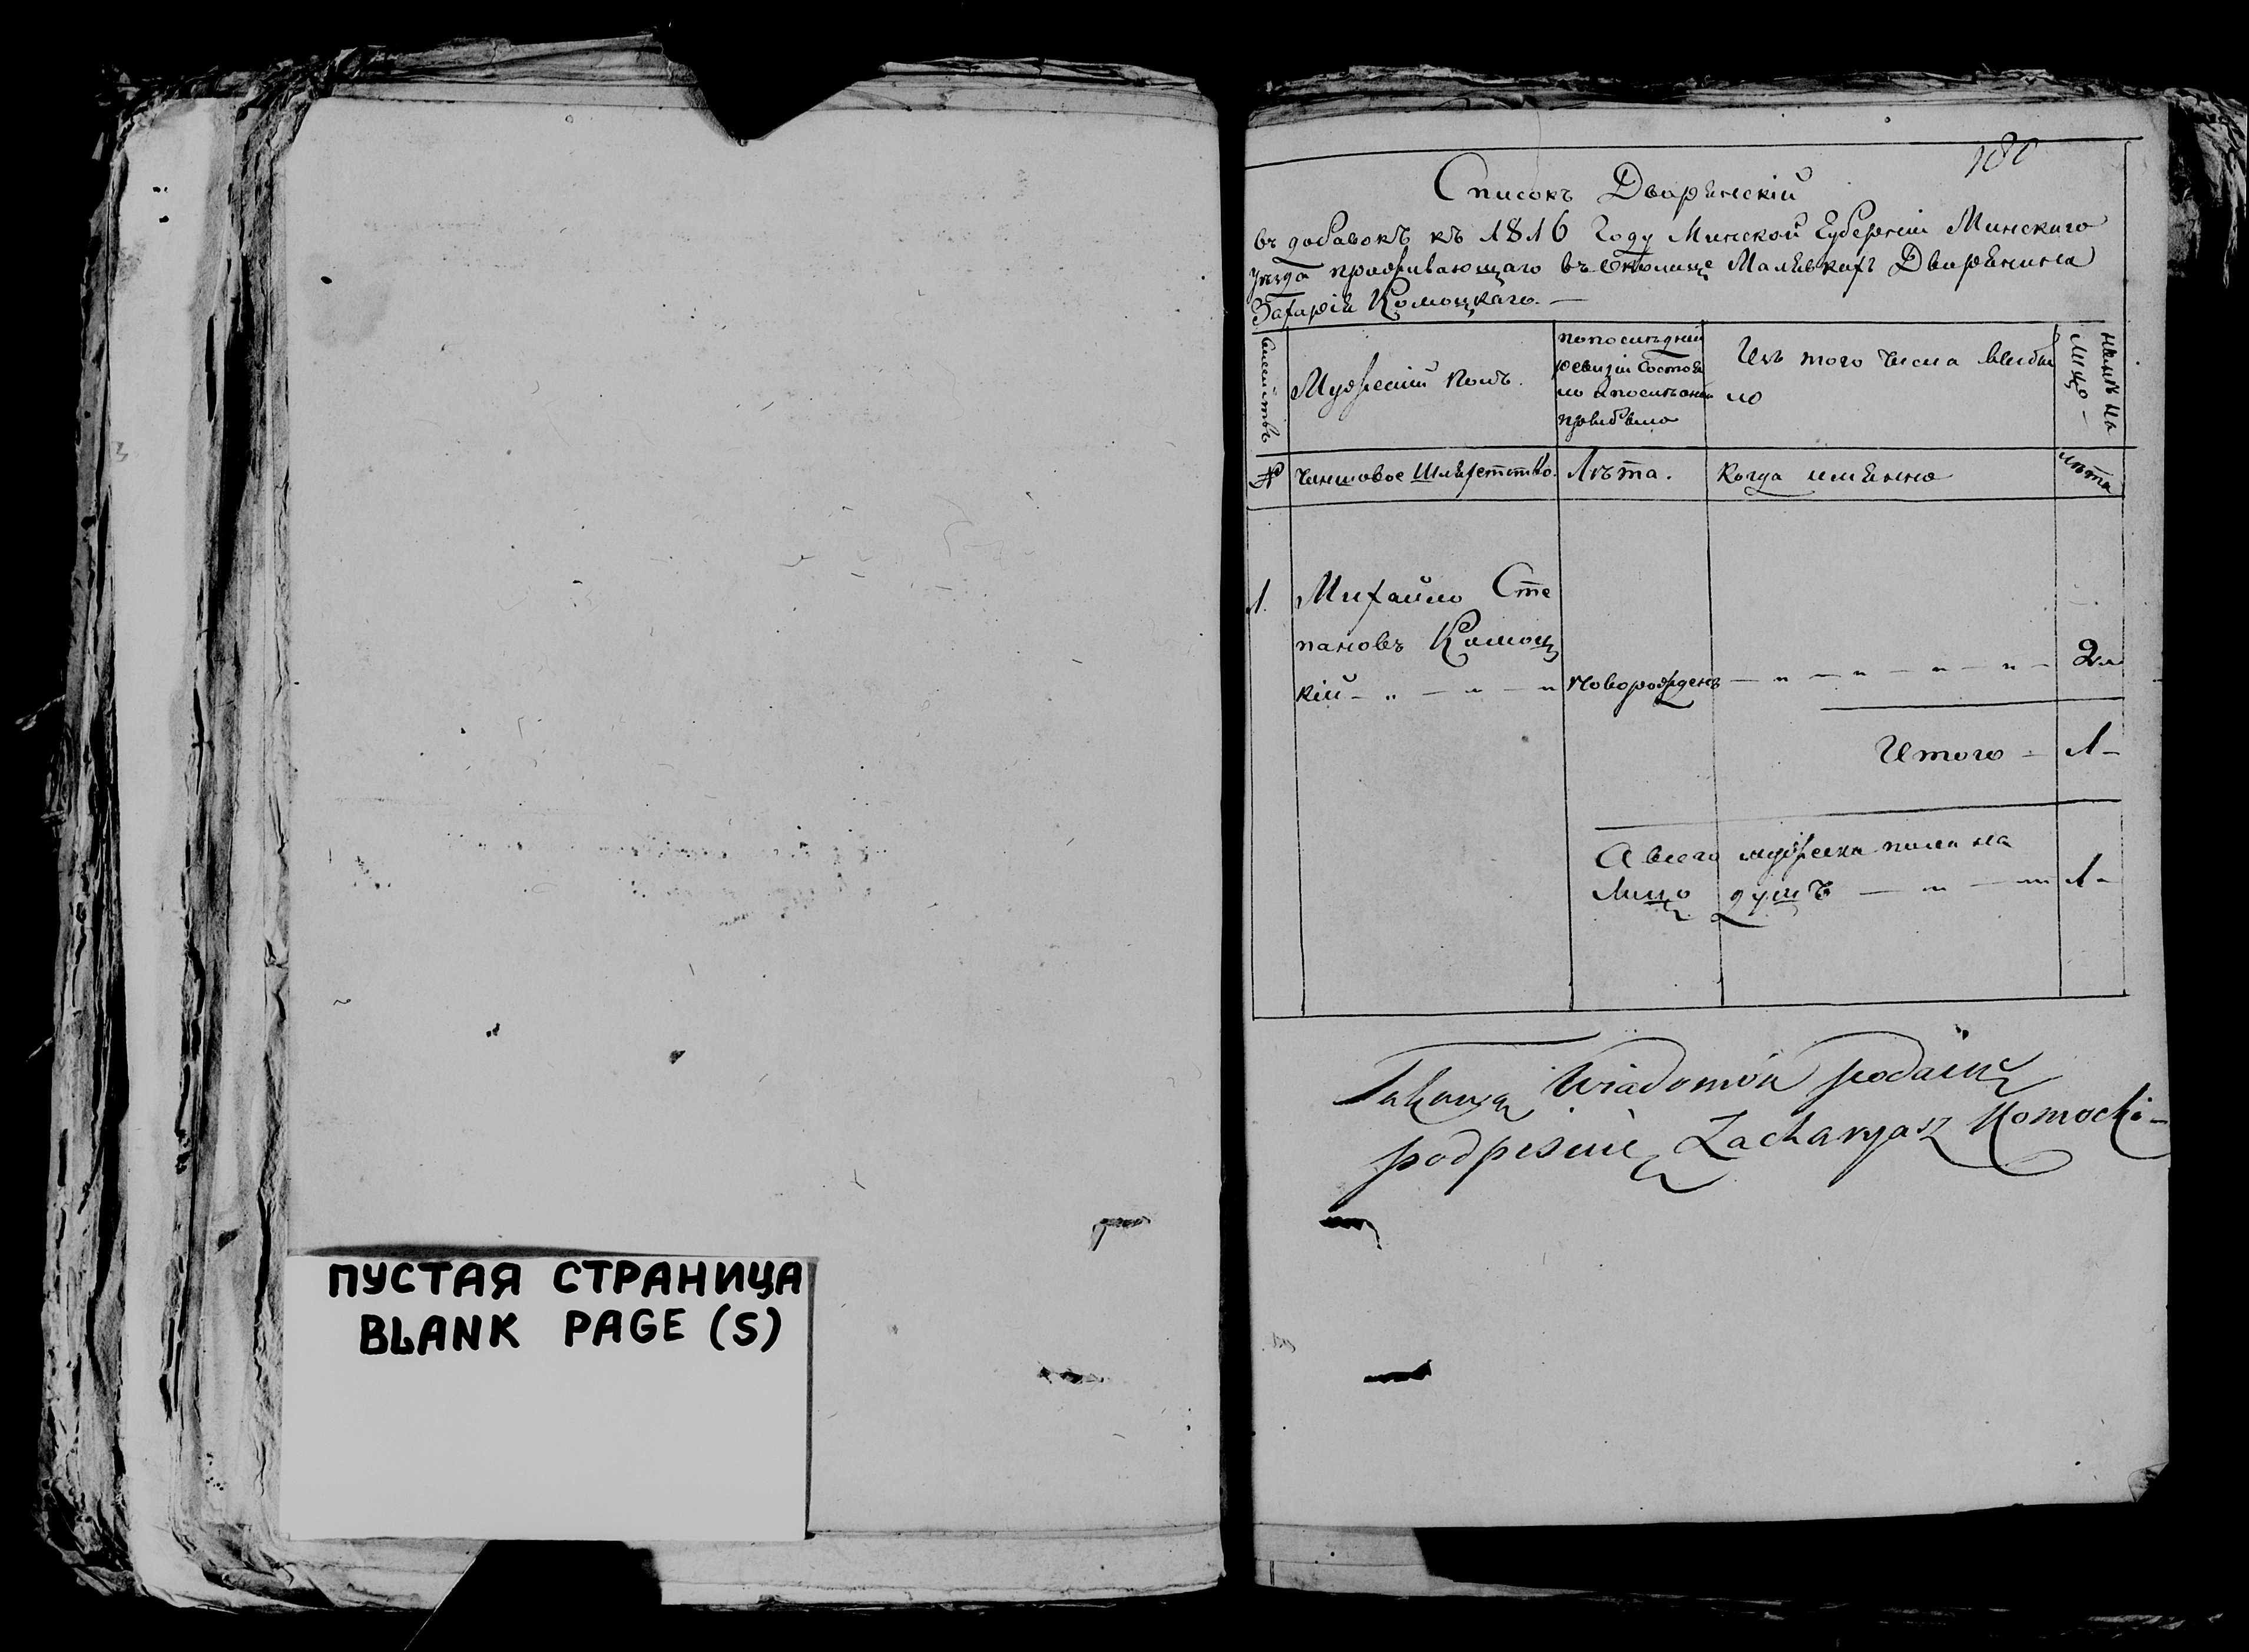 ПУСТАЯ СТРАНИЦА
BLANK PAGE (S)
180
Списокъ Дворянскій
въ добавокъ къ 1816 Году Минской Губерніи Минскаго
уѣзда проживающаго въ Околице Малявкахъ Дворянина
Захарія Комоцкаго. —
Мужескій полъ.
по последней
ревизіи Состоя
ло и после оной
прибыло
Изъ того Числа выбы
ло
налице на
Лицо
№
Чиншовое Шляхетство.
Лѣта.
Когда имянно
лѣта
1.
Михайло Сте
пановъ Комоц
кій
новорожденъ
2
Итого — 1 —
А всего мужеска пола на
Лицо душъ — 1 —
Takową Wiadomość podaiąc
podpisuię Zacharyasz Komocki —